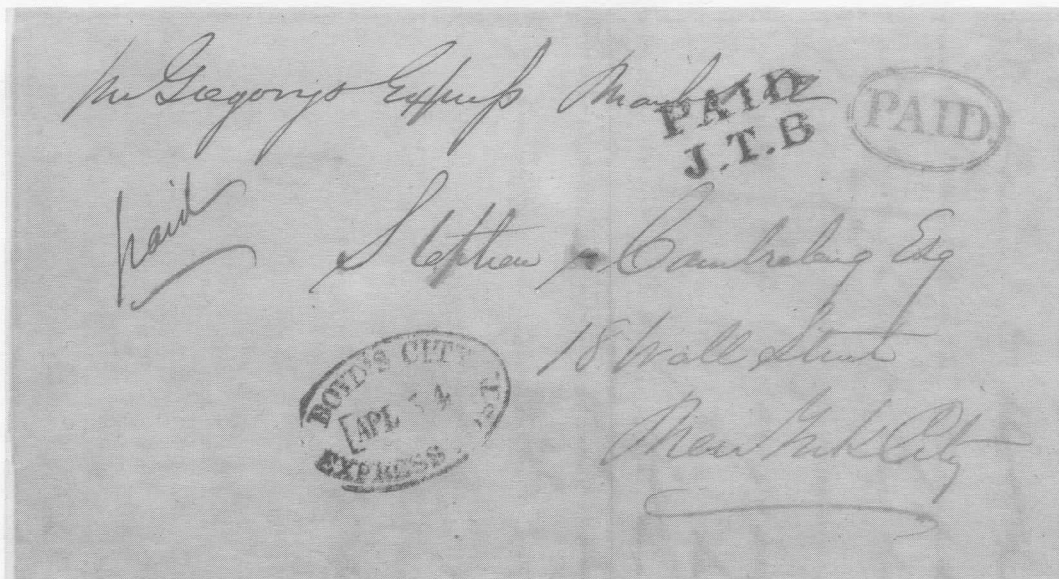 McGregorys Express
PAID
J.T.B
PAID
paid
Stephen Cambreleng Esq
18 Wall Street
New York City
BOYD'S CITY EXPRESS
APL 4